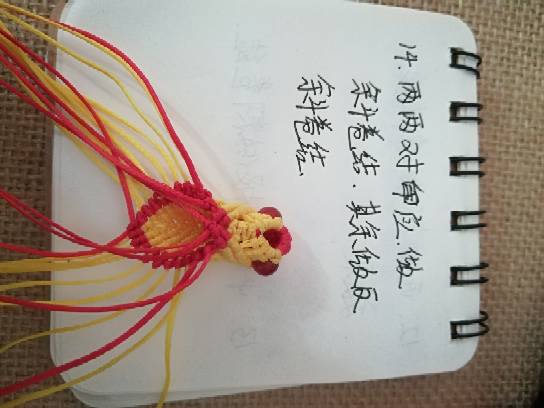 14.两两对应.做
斜卷结.其余做反
斜卷结.